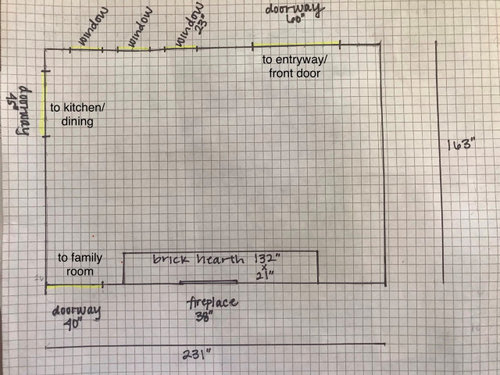 window
window
window
23"
doorway
60"
to entryway/
front door
doorway
45"
to kitchen/
dining
163"
to family
room
brick hearth 132"
x
21"
doorway
40"
fireplace
38"
231"